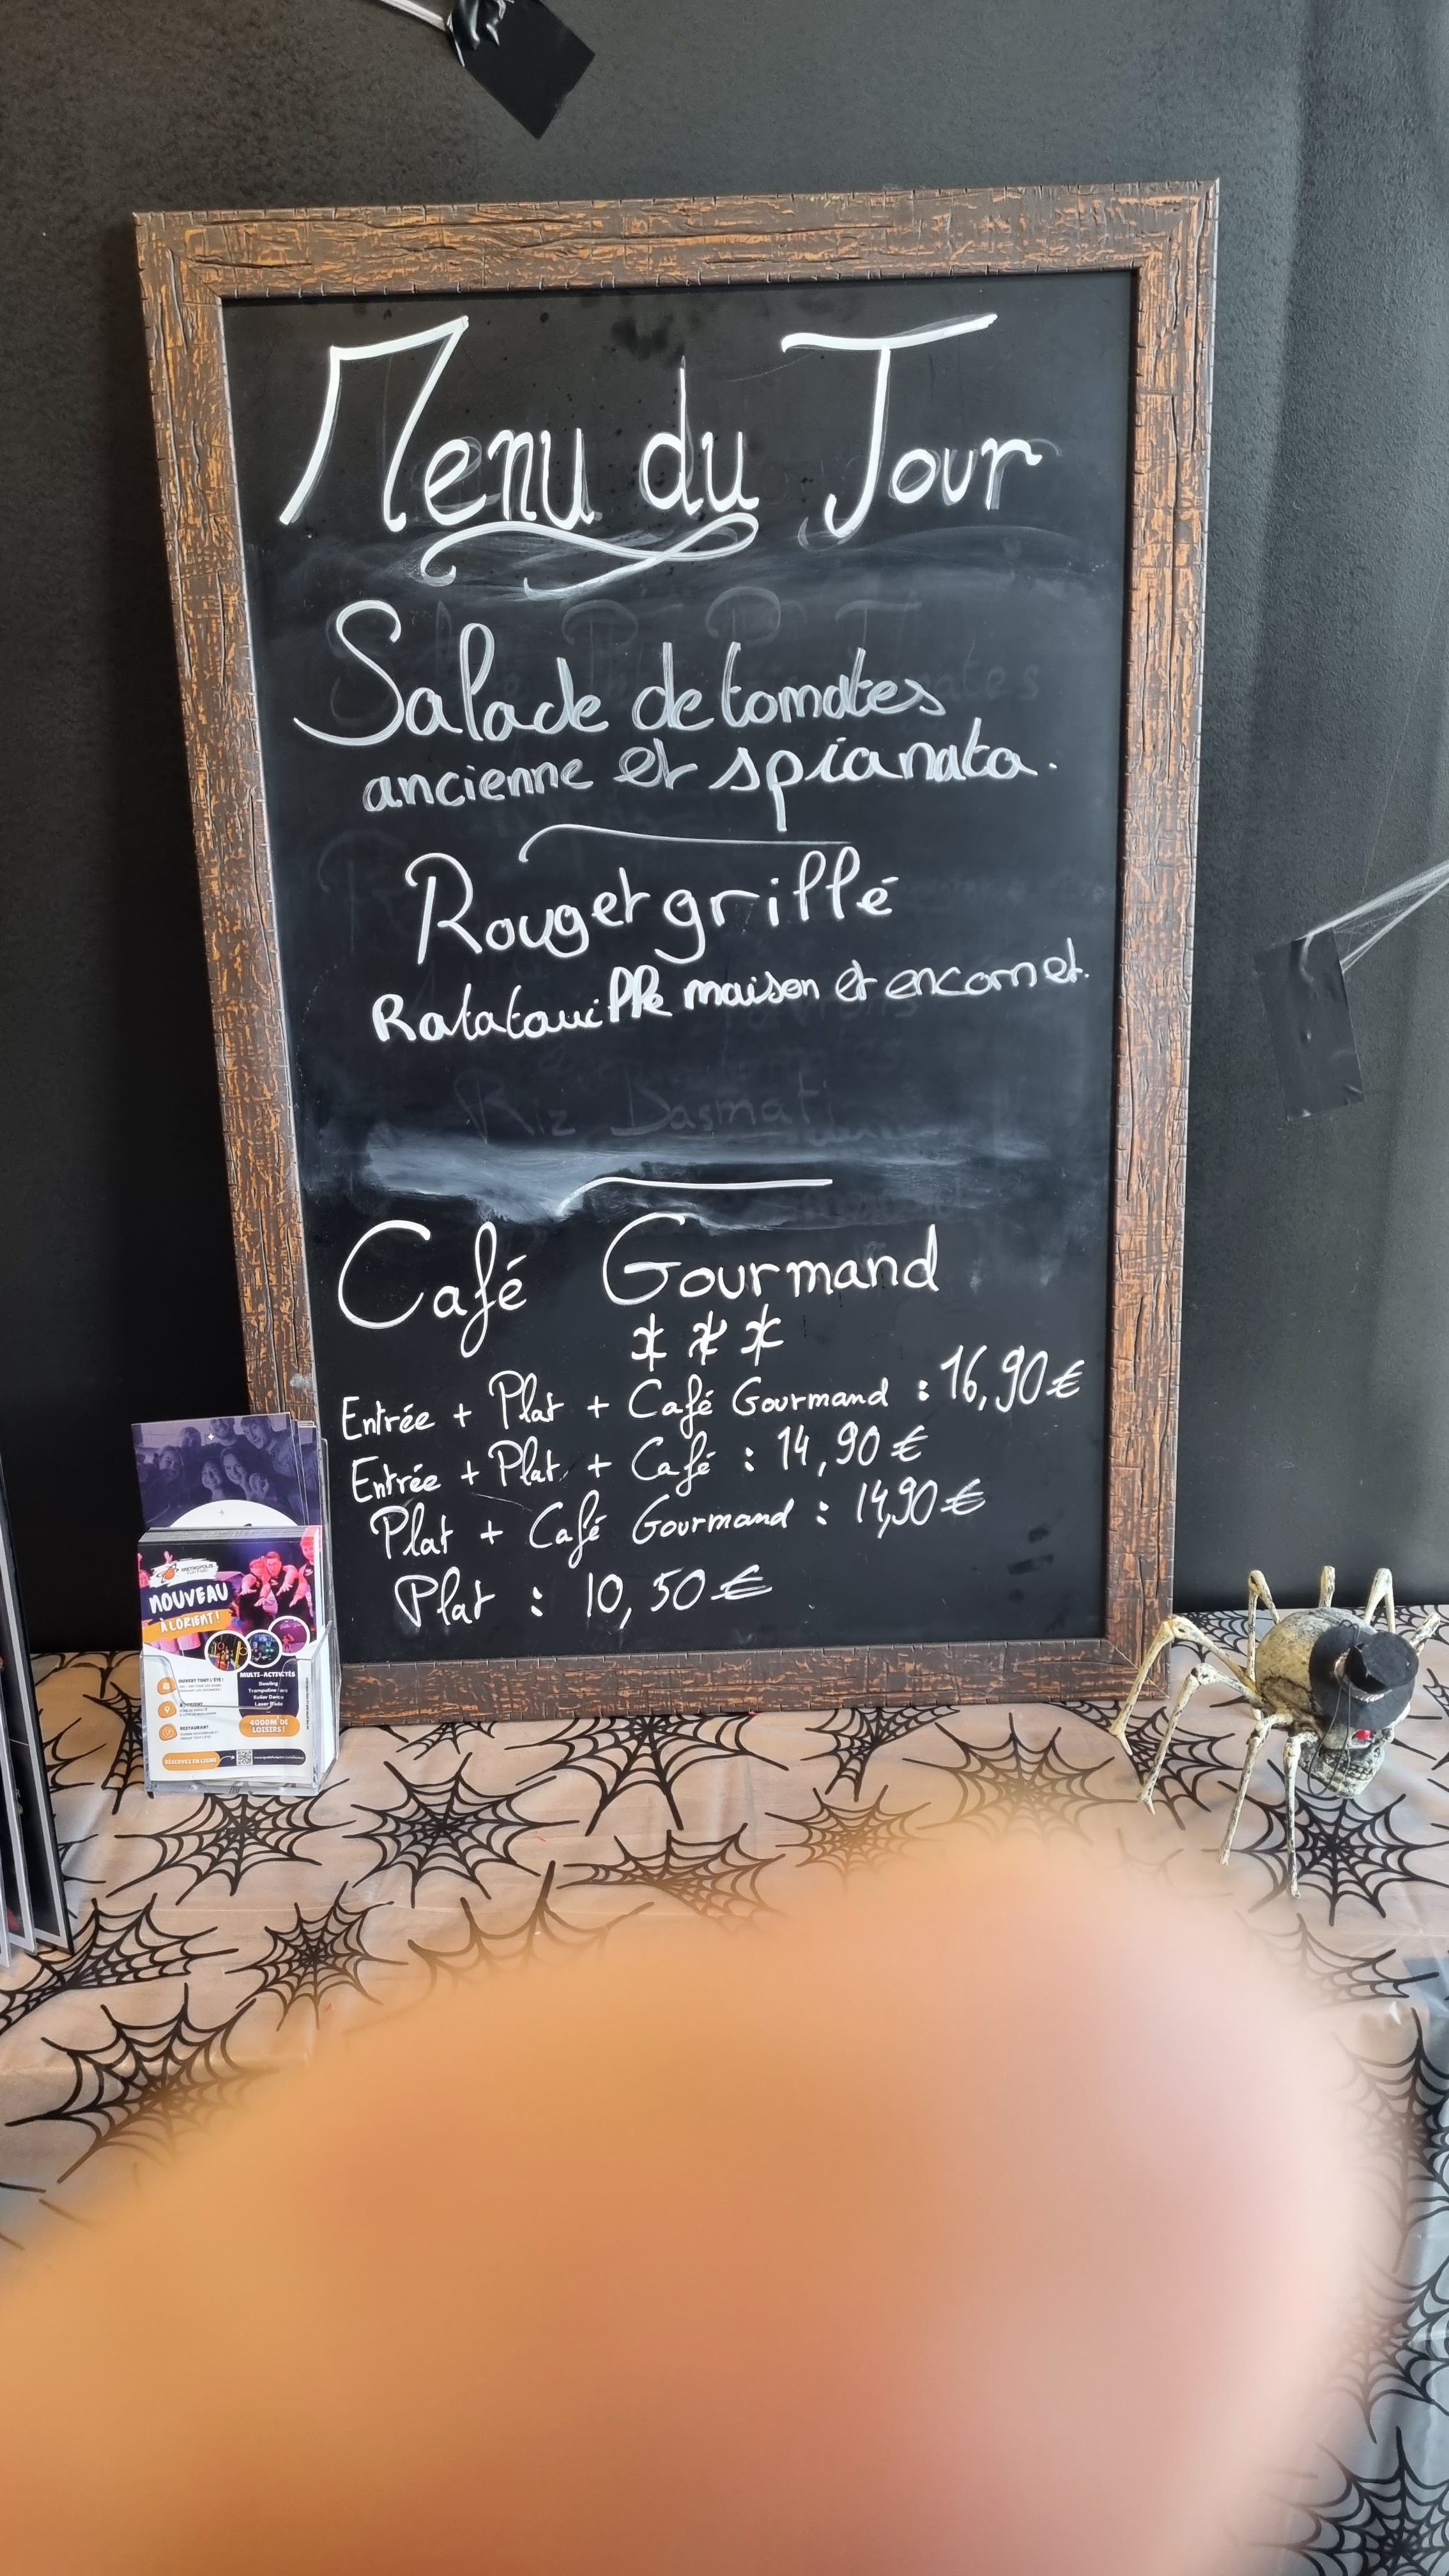 Menu du Jour
Salade de tomates
ancienne et spianata.
Rouget grillé
Ratatouille maison et encornet.
Riz Basmati
Café Gourmand
***
Entrée + Plat + Café Gourmand : 16,90 €
Entrée + Plat + Café : 14,90 €
Plat + Café Gourmand : 14,90 €
Plat : 10,50 €
METROPOLIS
NOUVEAU
À LORIENT !
MULTI-ACTIVITÉS
Bowling
OUVERT TOUT L'ÉTÉ !
RESTAURANT
4000M² DE
LOISIRS !
RÉSERVEZ EN LIGNE